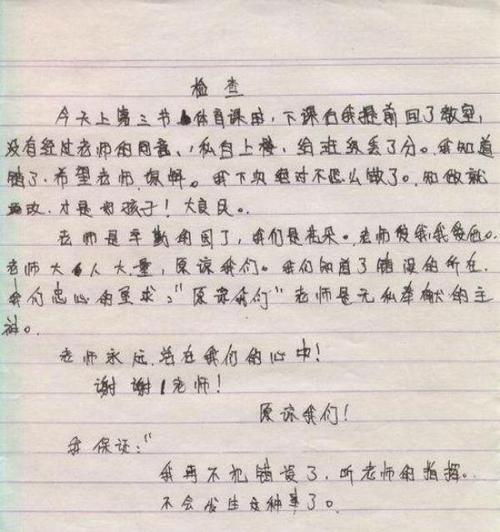 检查
今天上第三节体育课时，下课后我提前回了教室，
没有经过老师的同意、私自上楼，给班级丢了分。我知道
错了，希望老师谅解。我下次绝对不怎么做了。知做就
改，才是好孩子！大良民。
老师是辛勤的园丁，我们是花朵。老师爱我，我爱他。
老师大人大量，原谅我们。我们知道了错误的所在，
我们忠心的恳求：“原谅我们”老师是无私奉献的主
神。
老师永远活在我们的心中！
谢谢老师！
原谅我们！
我保证：“
我再不犯错误了，听老师的指挥。
不会发生这种事了。